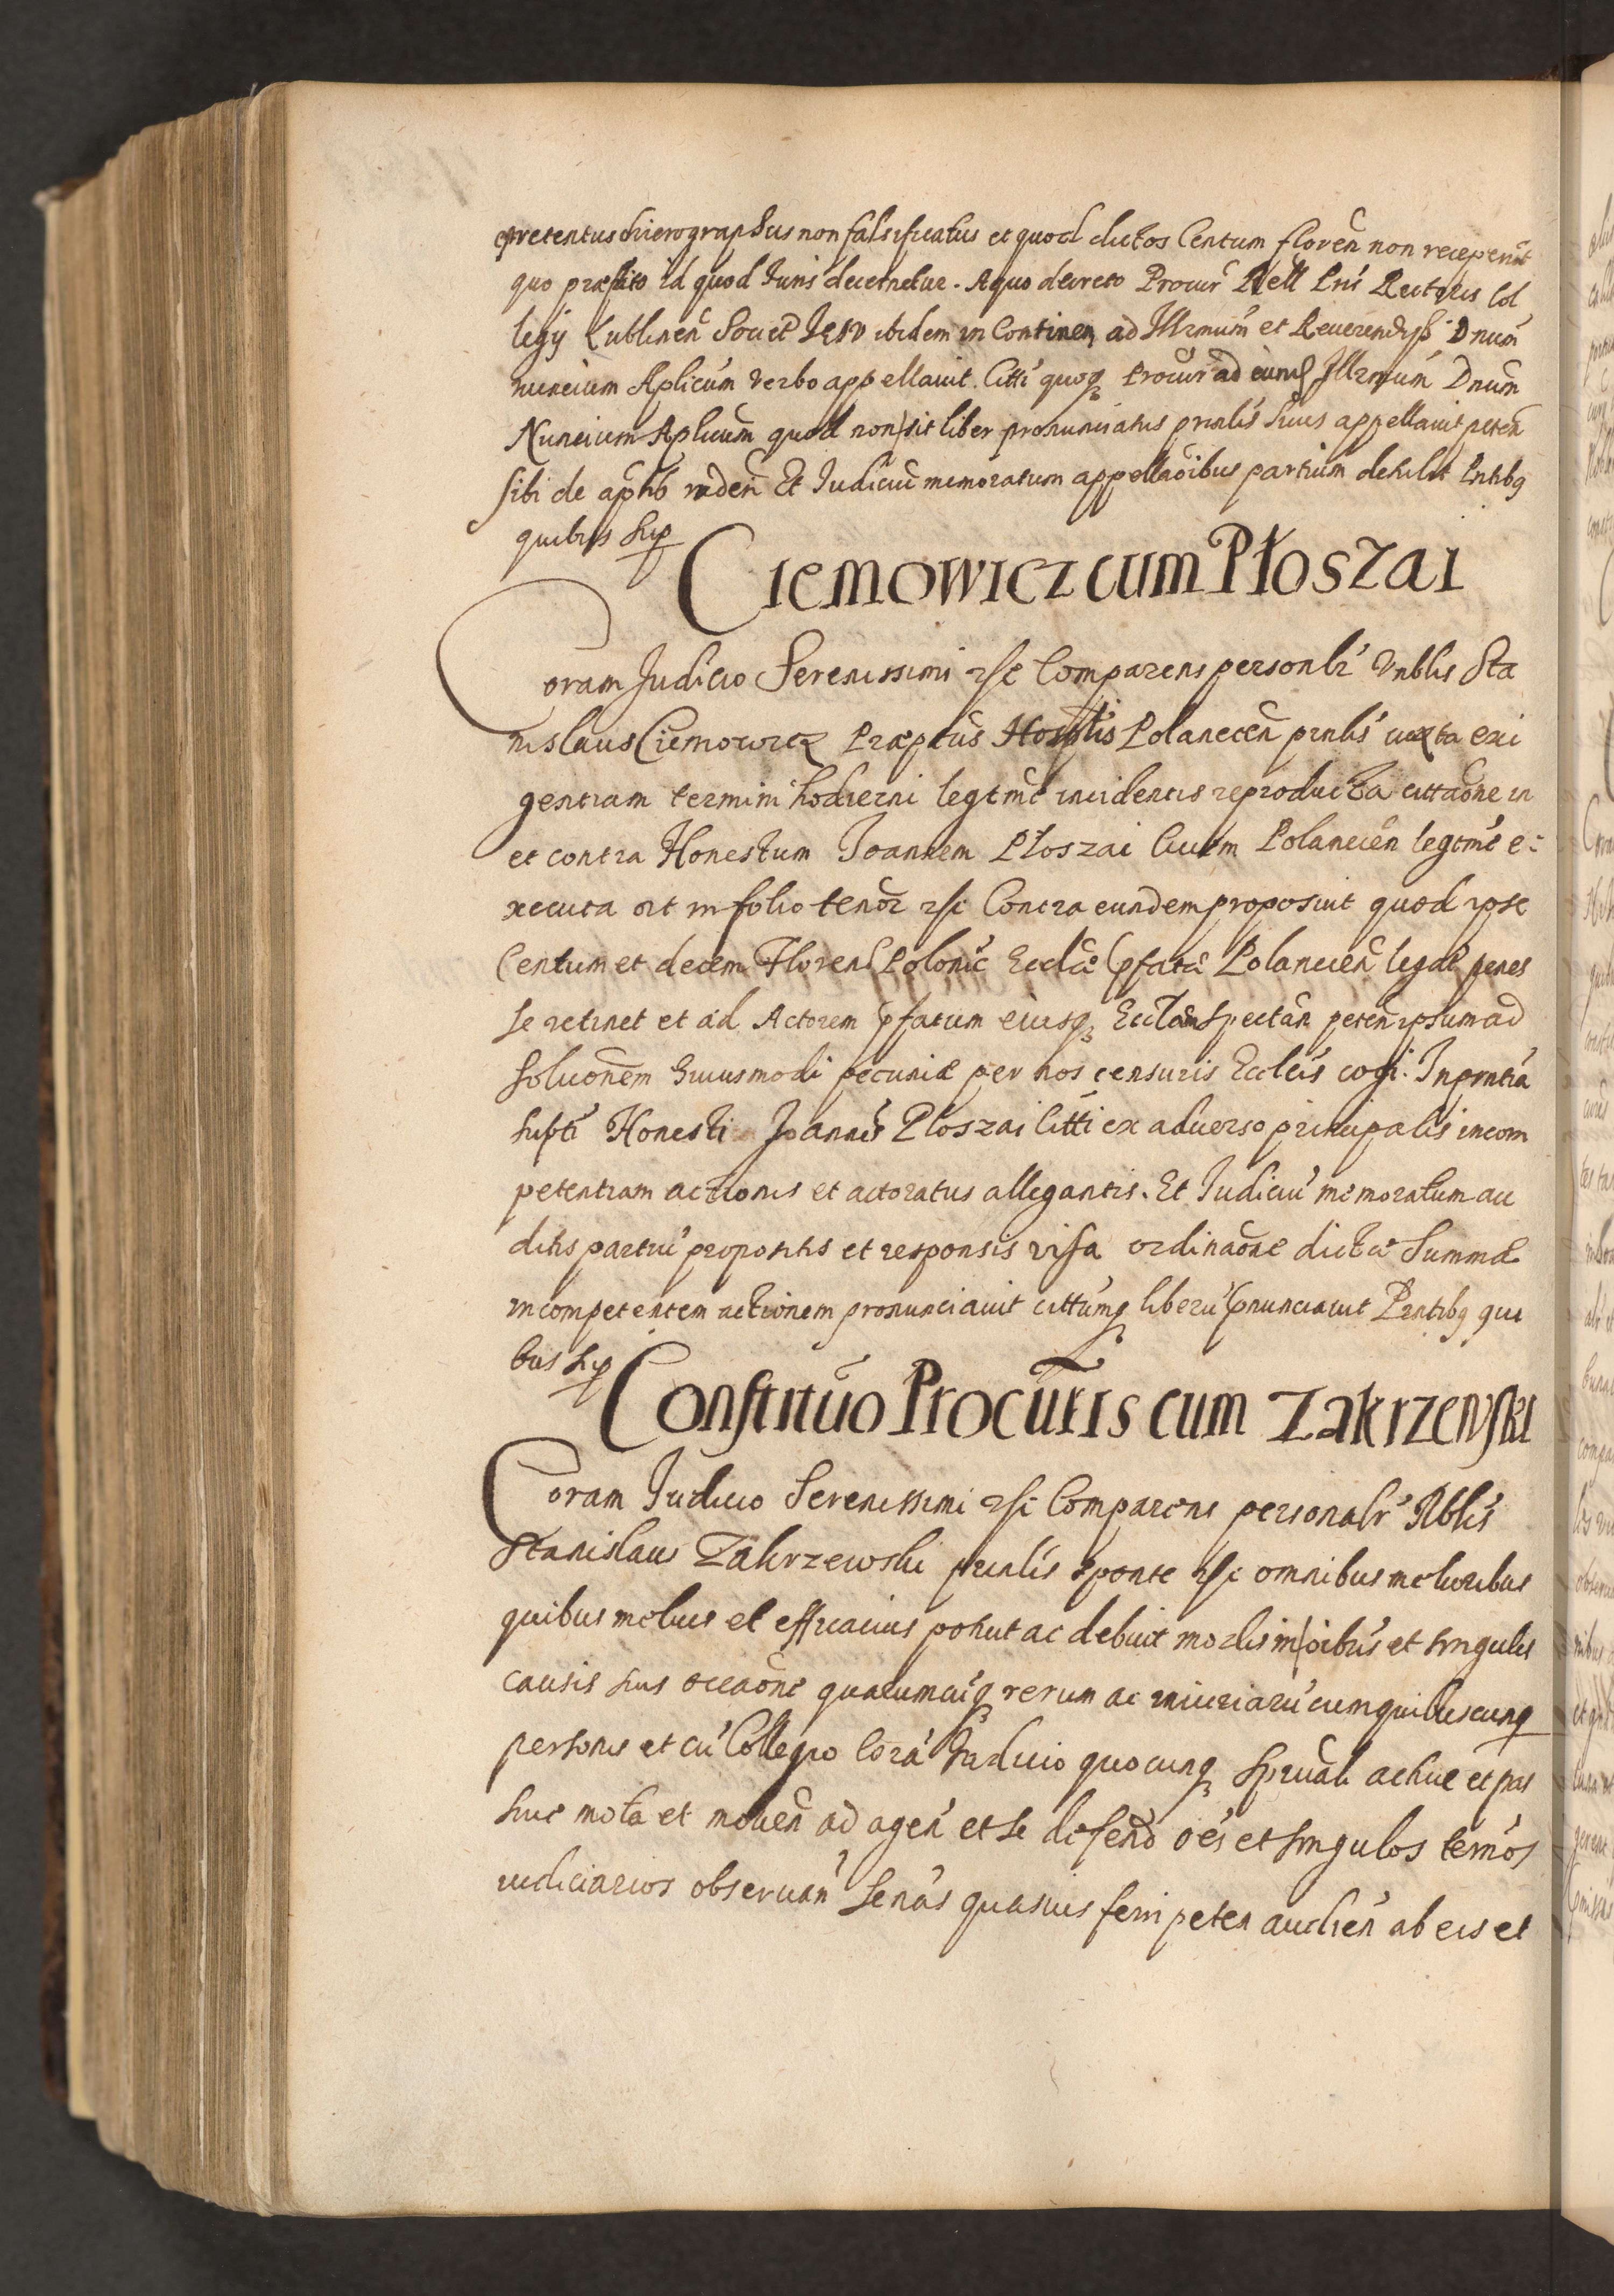 pretentus chierographus non falsificatus et quod dictos Centum floren̄ non receperint
quo præstito id quod Iuris decernetur. A quo decreto Procur̄ Rell Pris Rectoris Col
legij Lublinen̄ Societ̄ Iesv ibidem in Continen̄ ad Illrmum et Reuerendiss Dnum
nuncium Aplicum verbo appellauit. Citti quoq̨ Procur̄ ad eund Illrmum Dnum
Nuncium Aplicum quod non sit liber pronunciatus prnlis suus appellauit peten̄
sibi de aplis r̄nden̄ Et Iudiciū memoratum appellāoibus partium detulit Pntibq̨
quibus Sup
Ciemowicz cum Płoszai
Coram Judicio Serenissimi etc Comparens personlr̄ Vnblis Sta
nislaus Ciemowicz Præptus Hosplis Polanecen̄ prnlis iuxta exi
gentiam termini hodierni legtmē incidentis reproducta cittāone in
et contra Honestum Joannem Płoszai Ciuem Polanecen̄ legtmē e:
xecuta ort in folio tenor̄ etc Contra eundem proposuit quod ipse
Centum et decem Floren̄ Polonic̄ Eccliæ pfatæ Polanecen̄ legāt penes
se retinet et ad Actorem pfatum eiusq̨ Eccl̄am spectan̄ peten̄ ipsum ad
soluōnem huiusmodi pecuniæ per nos censuris Eccleis cogi. In pr̄ntia
supti Honesti Joannis Płoszai Citti ex aduerso principalis incom
petentiam actionis et actoratus allegantis. Et Iudiciū memoratum au
ditis partiū propositis et responsis visa ordināone dictæ Summæ
incompetentem actionem pronunciauit cittumq̨ liberū pnunciauit Prntibq̨ qui
bus Sup
Constitūo Procūris cum Zakrzewski
Coram Iudicio Serenissimi etc Comparens personalr̄ Nblis
Stanislaus Zakrzewski prinlis sponte etc omnibus melioribus
quibus melius et efficacius potuit ac debuit modis in oibus et singulis
causis suis occāone quarumcūq̨ rerum ac iniuriarū cum quibuscunq̨
personis et cū Collegio Corā Iudicio quocunq̨ spruali actiue et pas
siue mota et mouen̄ ad agen̄ et se defend̄ oēs et singulos termos
iudiciarios obseruan̄ Senās quasuis ferri peten̄ audien̄ ab eis et